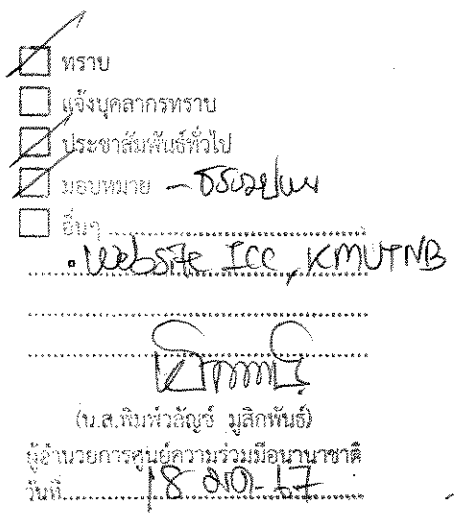 ทราบ
แจ้งบุคลากรทราบ
ประชาสัมพันธ์ทั่วไป
มอบหมาย -
อื่นๆ
• Website ICC, KMUTNB
(น.ส.พิมพ์วลัญช์ มูสิกพันธ์)
ผู้อำนวยการศูนย์ความร่วมมือนานาชาติ
วันที่ 18 มิ.ย. 67